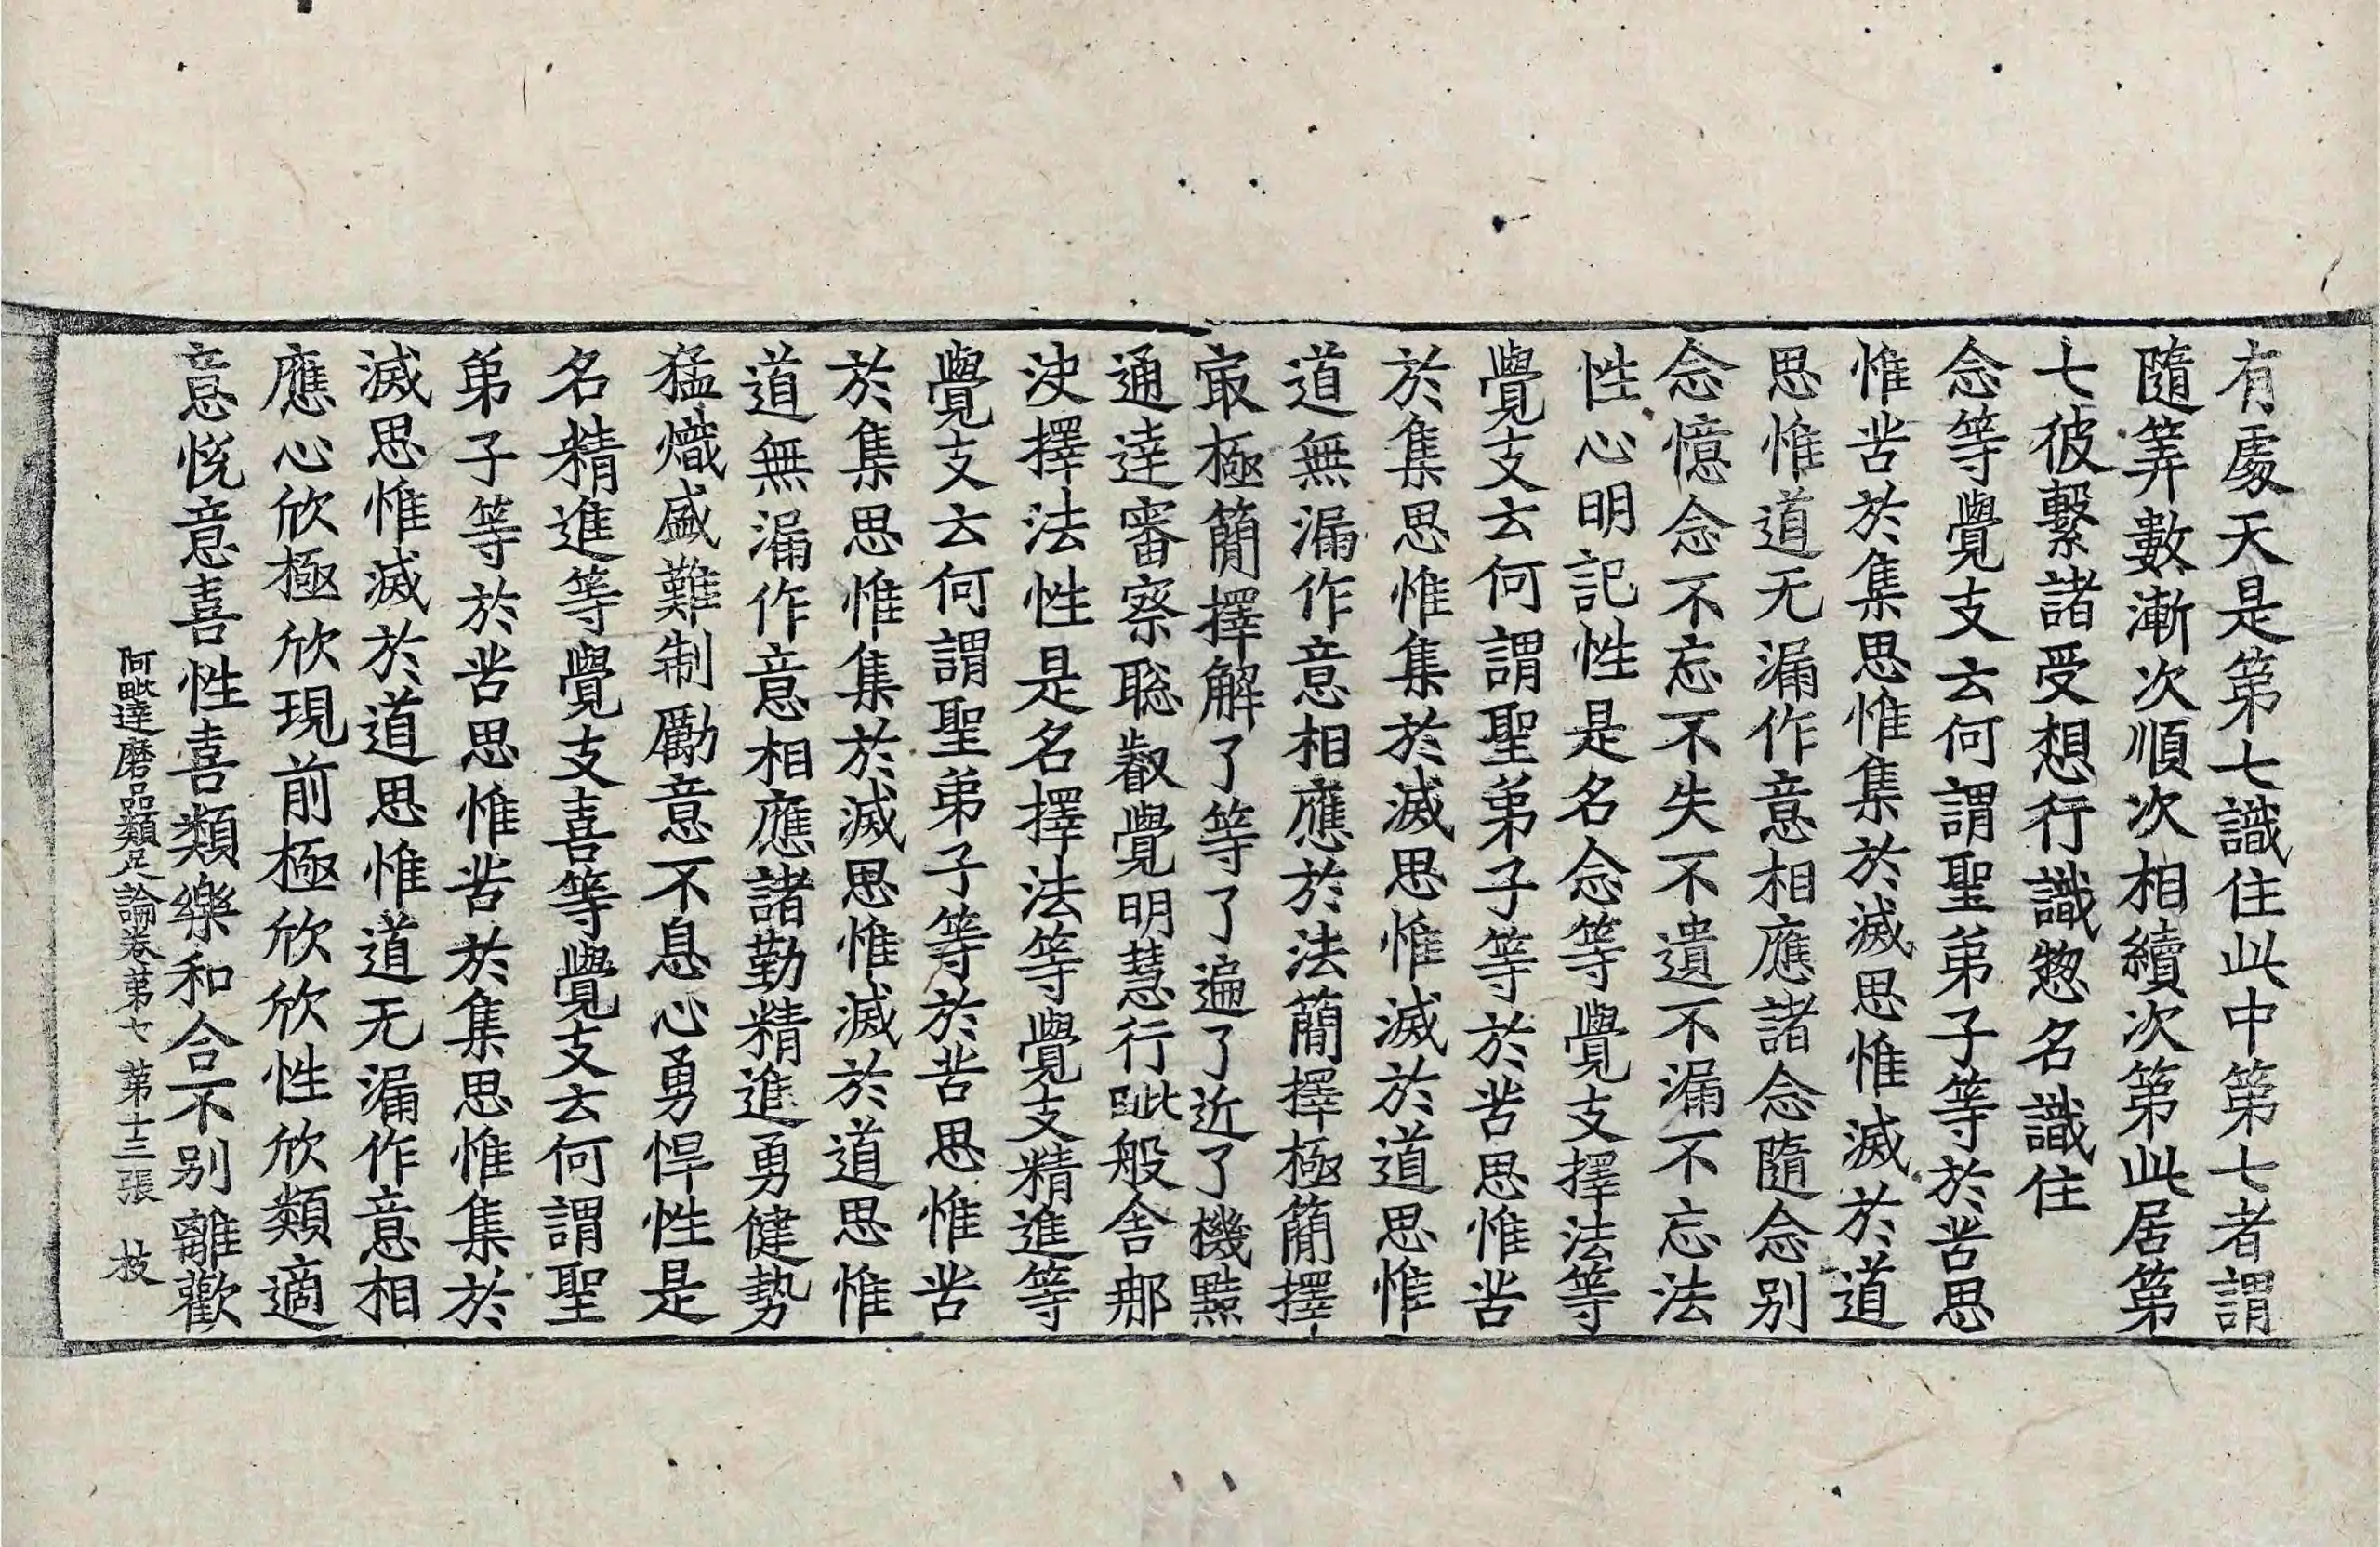 有處天是第七識住此中第七者謂
隨筭數漸次順次相續次第此居第
七彼繫諸受想行識惣名識住
念等覺支云何謂聖弟子等於苦思
惟苦於集思惟集於滅思惟滅於道
思惟道无漏作意相應諸念隨念别
念憶念不忘不失不遺不漏不忘法
性心明記性是名念等覺支擇法等
覺支云何謂聖弟子等於苦思惟苦
於集思惟集於滅思惟滅於道思惟
道無漏作意相應於法簡擇極簡擇
㝡極簡擇解了等了遍了近了機黠
通達審察聡叡覺明慧行毗般舍那
決擇法性是名擇法等覺支精進等
覺支云何謂聖弟子等於苦思惟苦
於集思惟集於滅思惟滅於道思惟
道無漏作意相應諸勤精進勇健勢
猛熾盛難制勵意不息心勇悍性是
名精進等覺支喜等覺支云何謂聖
弟子等於苦思惟苦於集思惟集於
滅思惟滅於道思惟道无漏作意相
應心欣極欣現前極欣欣性欣類適
意悦意喜性喜類樂和合不别離歡
阿毗達磨品類足論卷第七 第十三張 枝